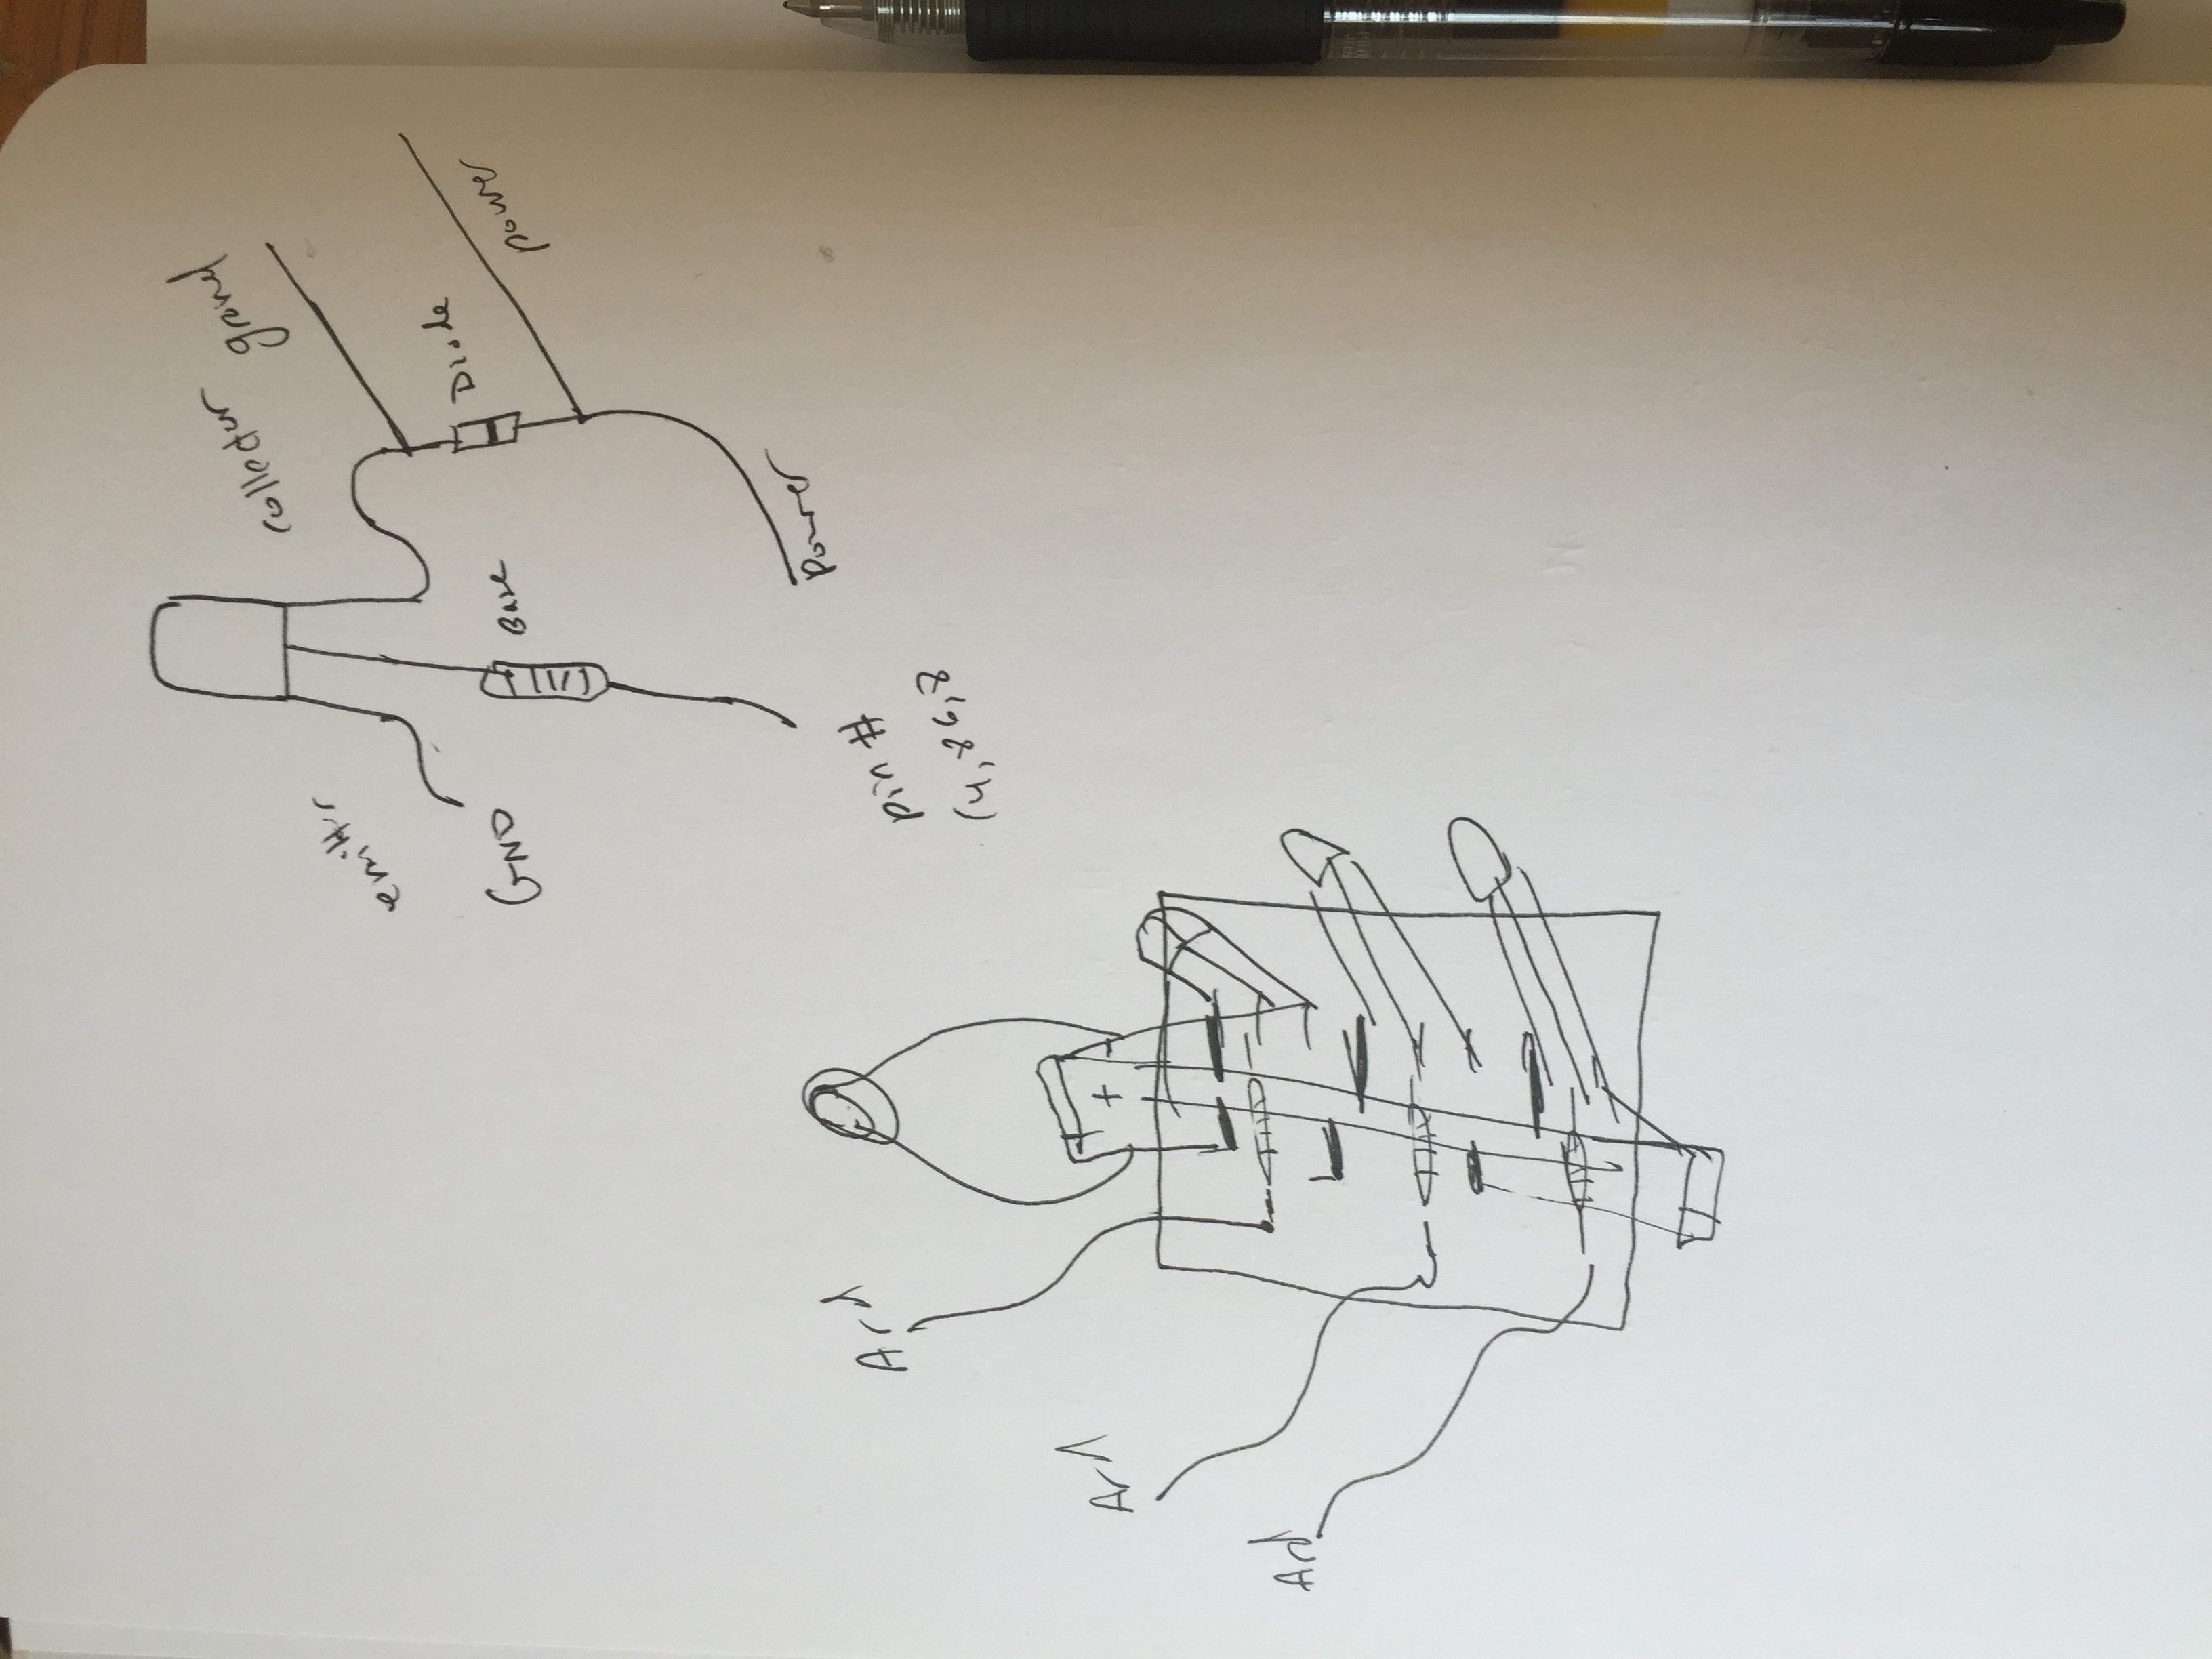 collector
ground
emitter
GND
Base
Diode
power
Power
pin #
(4, 86, 8
Ard
Ard
Ard
+
-